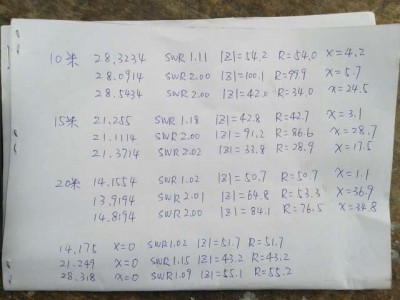 10米 28.3234 SWR 1.11 |Z|=54.2 R=54.0 X=4.2
28.0914 SWR 2.00 |Z|=100.1 R=99.9 X=5.7
28.5434 SWR 2.00 |Z|=42.0 R=34.0 X=24.5
15米 21.255 SWR 1.18 |Z|=42.8 R=42.7 X=3.1
21.1114 SWR 2.00 |Z|=91.2 R=86.6 X=28.7
21.3714 SWR 2.02 |Z|=33.8 R=28.9 X=17.5
20米 14.1554 SWR 1.02 |Z|=50.7 R=50.7 X=1.1
13.9194 SWR 2.01 |Z|=64.8 R=53.3 X=36.9
14.8194 SWR 2.00 |Z|=84.1 R=76.5 X=34.8
14.175 X=0 SWR 1.02 |Z|=51.7 R=51.7
21.249 X=0 SWR 1.15 |Z|=43.2 R=43.2
28.318 X=0 SWR 1.09 |Z|=55.1 R=55.2